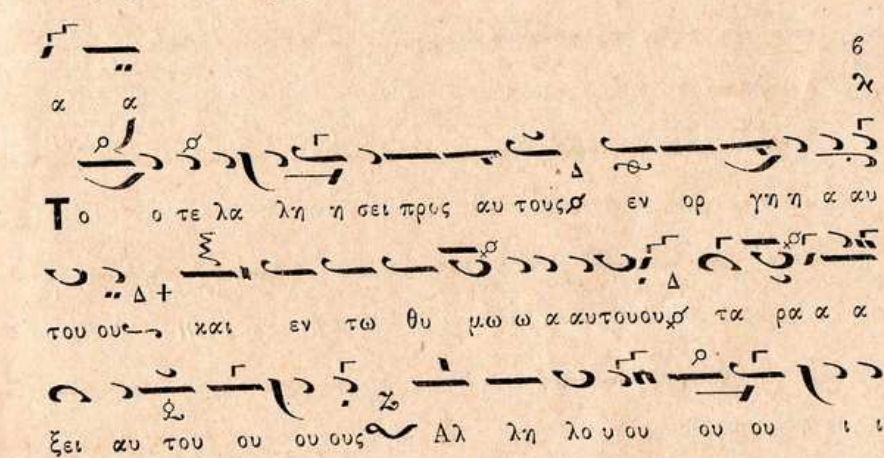 α α
Το ο τε λα λη η σει προς αυ τους εν ορ γη η α αυ
του ου και εν τω θυ μω ω α αυτουου τα ρα α α
ξει αυ του ου ου ους Αλ λη λο υ ου ου ου ι ι